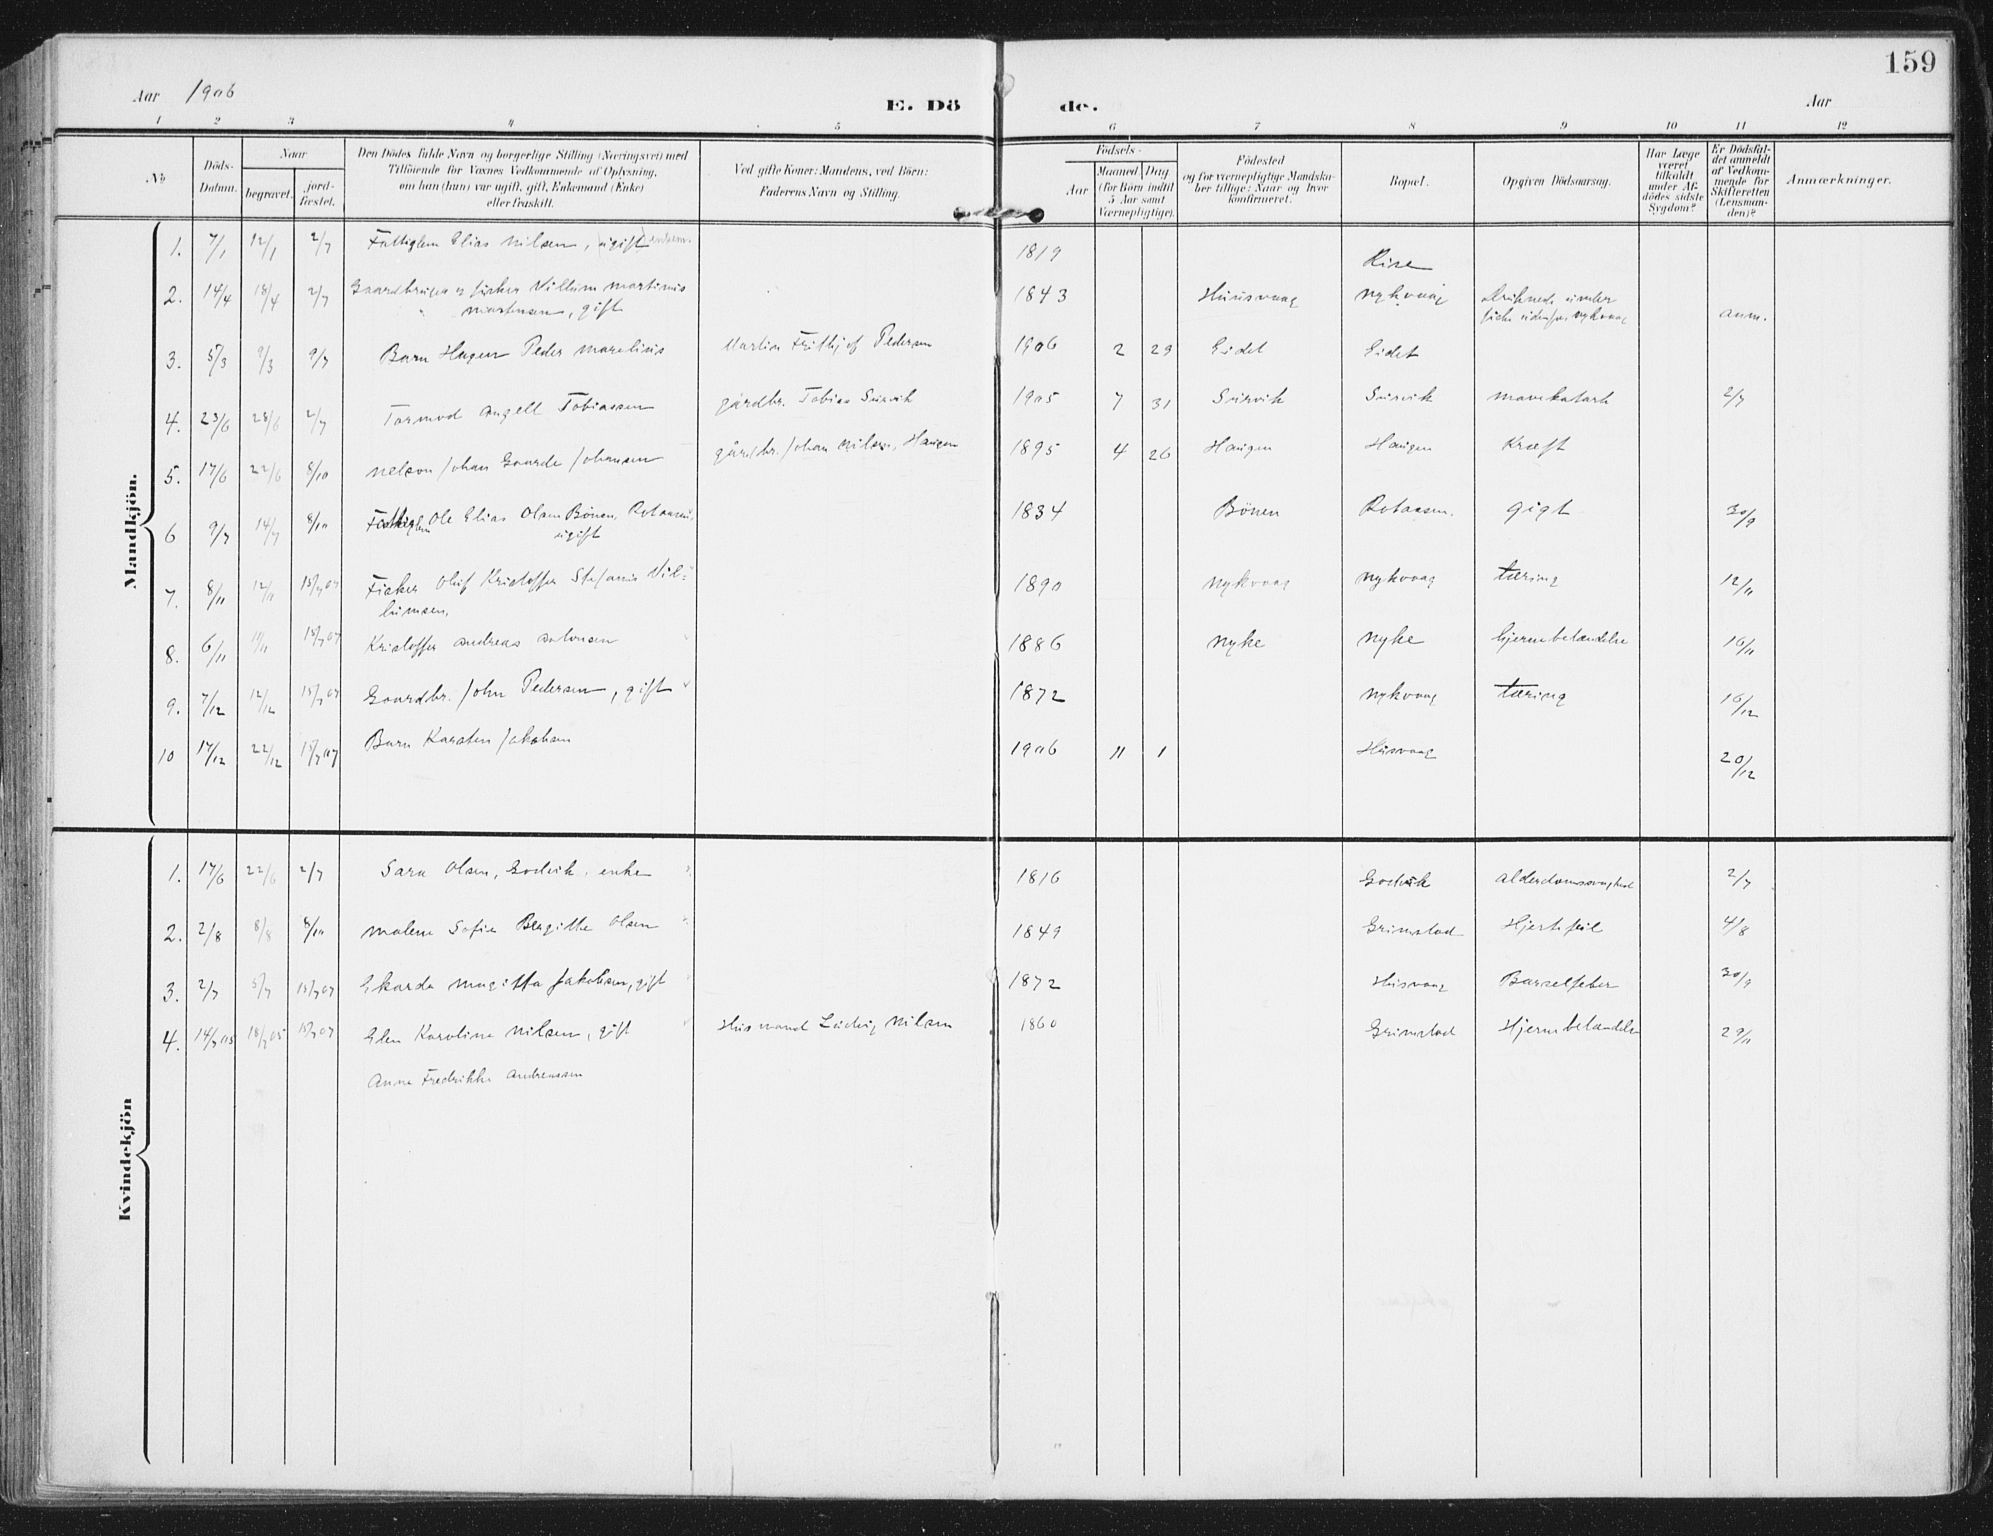 159
Aar 1906 E. Dö de. Aar
1 2 3 4 5 6 7 8 9 10 11 12
No
Döds-Datum.
Naar
begravet.
jord-fæstet.
Den Dödes fulde Navn og borgerlige Stilling (Næringsvei) med
Tilföiende for Voxnes Vedkommende af Oplysning,
om han (hun) var ugift, gift, Enkemand (Enke)
eller fraskilt.
Ved gifte Koner: Mandens, ved Börn:
Faderens Navn og Stilling.
Födsels-
Aar
Maaned Dag
(for Börn indtil
5 Aar samt
Værnepligtige).
Födested
og for værnepligtige Mandska-
ber tillige: Naar og hvor
konfirmeret.
Bopæl.
Opgiven Dödsaarsag.
Har Læge
været
tilkaldt
under Af-
dödes sidste
Sygdom?
Er Dödsfal-
det anmeldt
af Vedkom-
mende for
Skifteretten
(Lensman-
den)?
Anmærkninger.
Mandkjön.
1. 7/1 12/1 2/7 Fattiglem Elias Nilsen, ugift 1819 Rise
2. 14/4 18/4 2/7 Gaardbruger og fisker Villum Martinus 1843 Huusvaag Nykvaag Druknede under
Martinsen, gift fiske udenfor Nykvaag anm.
3. 5/3 9/3 9/7 Barn Hagen Peder Marelius Martin Frithjof Pedersen 1906 2 29 Eidet Eidet
4. 23/6 28/6 2/7 Tormod Angell Tobiassen gårdbr. Tobias 1905 7 31 mavekatarh 2/7
5. 17/6 22/6 8/10 Nelson Johan Gaarde Johansen gårdbr. Johan Nilsen, Haugen 1895 4 26 Haugen Haugen Kræft
6 9/7 14/7 8/10 Fattiglem Ole Elias Olsen Bönen, 1834 Bönen gigt 30/9
ugift
7. 8/11 12/11 15/7 07 Fisker Oluf Kristoffer Stefanus Vil- 1890 Nykvaag Nykvaag tæring 12/11
lumsen.
8. 6/11 11/11 15/7 07 Kristoffer Andreas Antonsen 1886 Nyke Nyke hjernebetændelse 16/11
9. 7/12 12/12 15/7 07 Gaardbr. John Pedersen, gift 1872 Nykvaag tæring 16/12
10 17/12 22/12 15/7 07 Barn Karsten Jakobsen 1906 11 1 Husvaag 20/12
Kvindekjön
1. 17/6 22/6 2/7 Sara Olsen, Godvik, enke 1816 Godvik alderdomssvaghed 2/7
2. 2/8 8/8 8/10 Malene Sofie Bergitte Olsen 1849 Grimstad Hjertefeil 4/8
3. 2/7 5/7 15/7 07 Ekarda Magitta Jakobsen, gift 1872 Husvaag Barselfeber 30/9
4. 14/7 05 18/7 05 15/7 07 Elen Karoline Nilsen, gift Husmand Ludvig Nilsen 1860 Grimstad Hjernebetændelse 29/11
Anna Fredrikke Andreassen